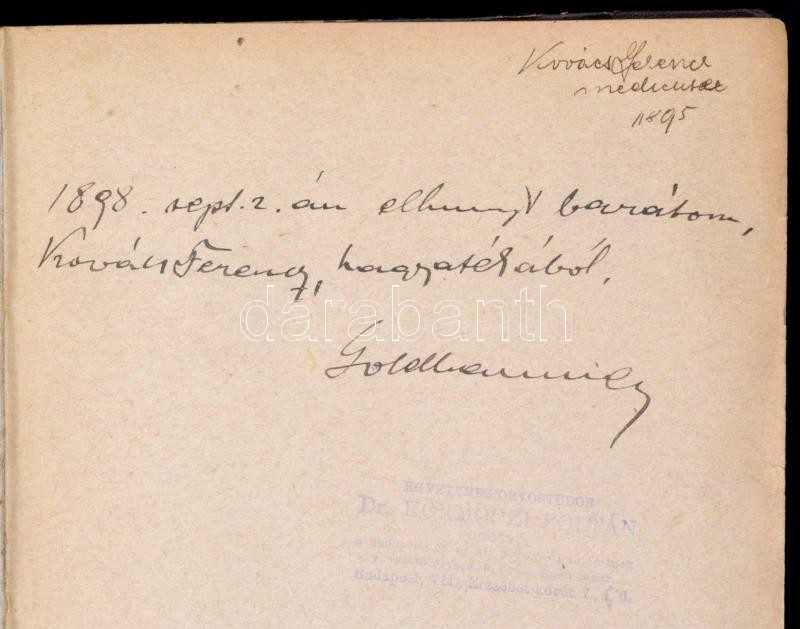 Kovács Ferenc
medicusé
1895
1898. sept. 2. án elhunyt barátom,
Kovács Ferencz, hagyatékából.
darabanth
EGYETEMES ORVOSTUDOR
Dr. KÖRMÖCZI ZOLTÁN
Budapest, VII., Erzsébet-körút 7., I. 6.